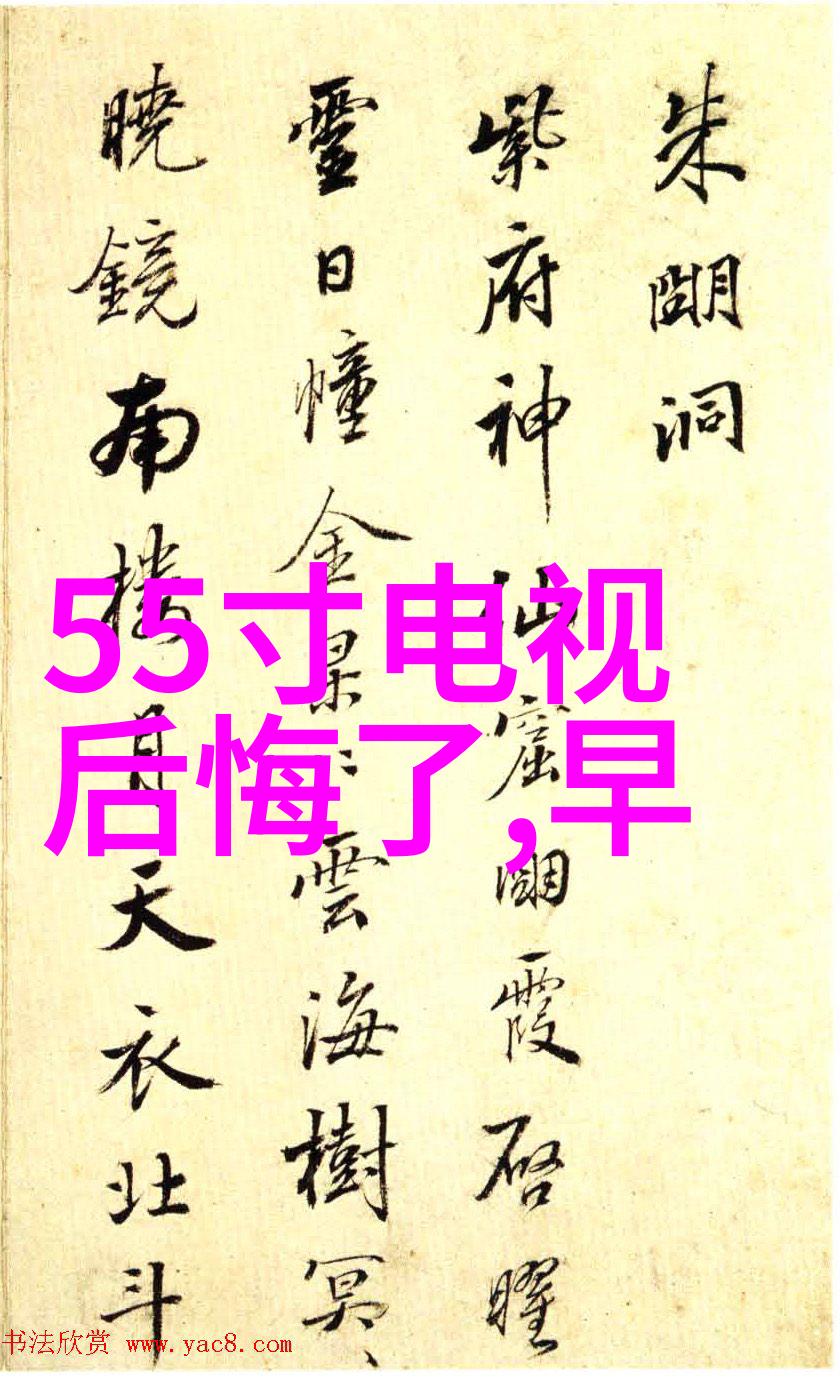 朱朙洞
紫府神仙窟朙霞啓曜
靈日幢金杲〻雲海樹冥〻
曉鏡南樓月天衣北斗
55寸电视
后悔了,早
书法欣赏 www.yac8.com